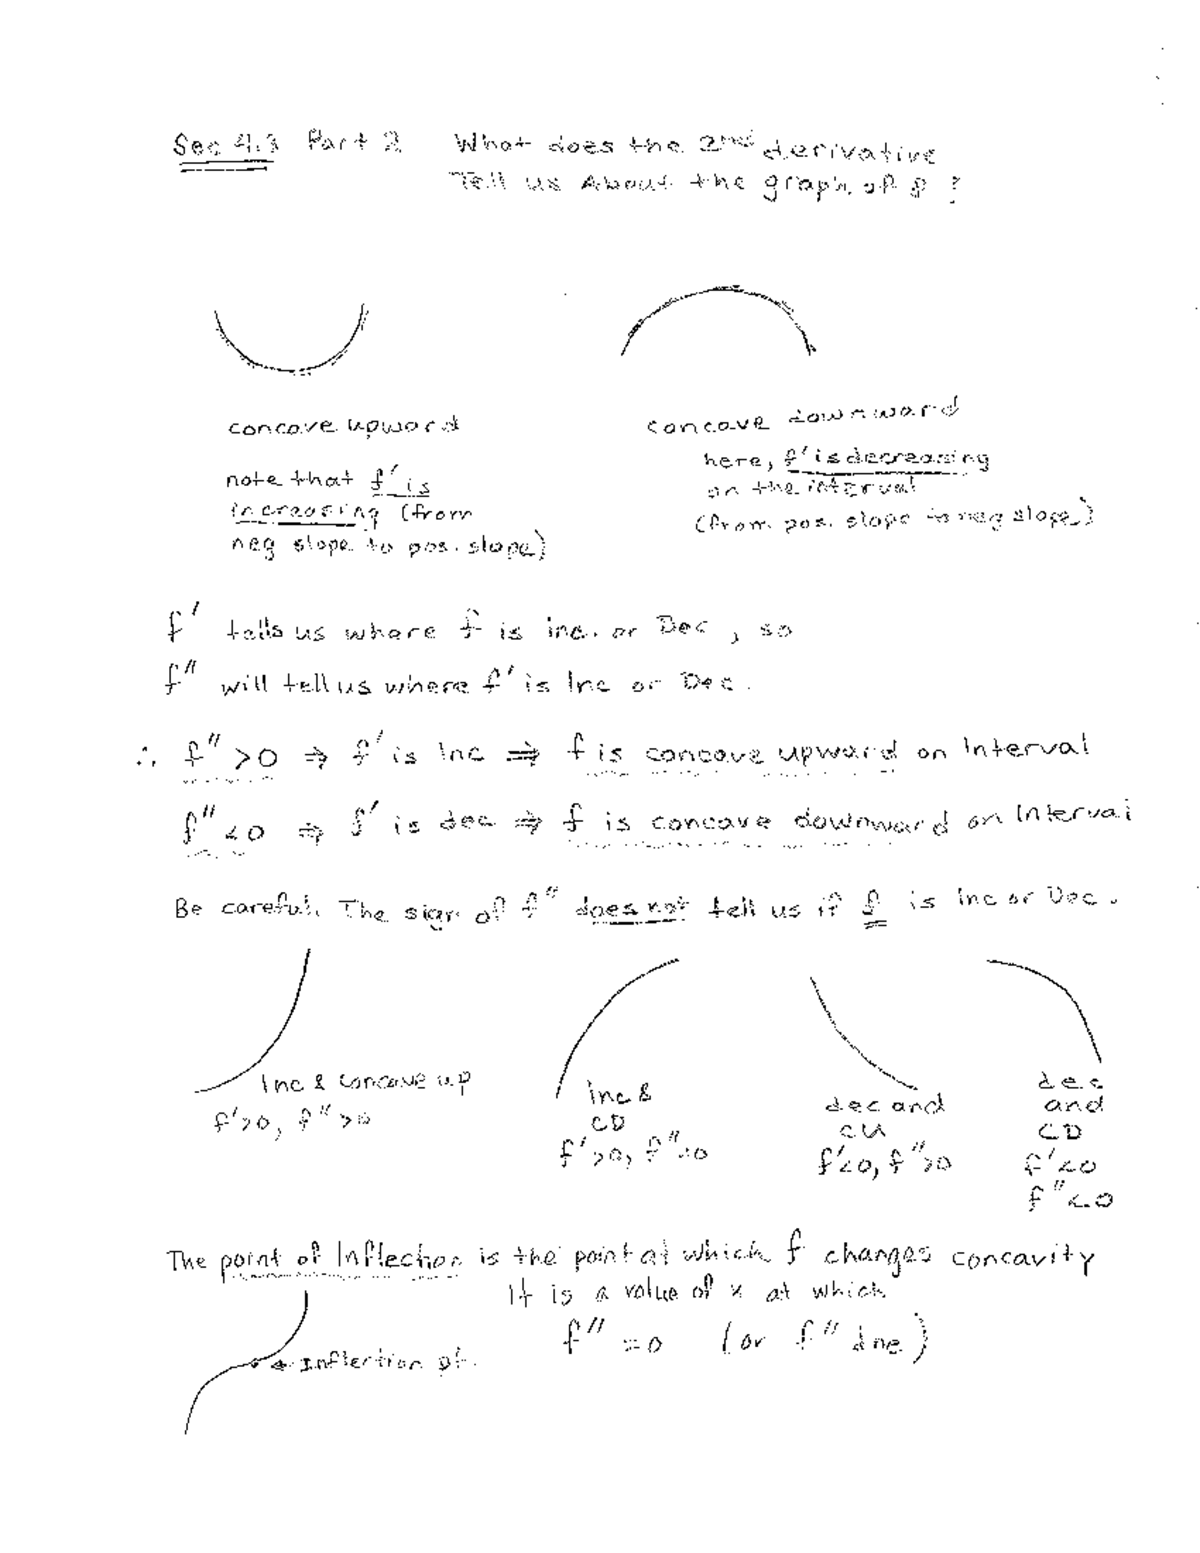 Sec 4.3 Part 2 What does the 2nd derivative
Tell us About the graph of f ?
concave upward
note that f' is
increasing (from
neg slope to pos. slope)
concave downward
here, f' is decreasing
on the interval
(from pos. slope to neg slope)
f' tells us where f is inc. or Dec, so
f" will tell us where f' is Inc or Dec.
∴ f" > 0 ⇒ f' is Inc ⇒ f is concave upward on Interval
f" < 0 ⇒ f' is dec ⇒ f is concave downward on Interval
Be careful. The sign of f" does not tell us if f is Inc or Dec.
Inc & concave up
f'>0, f">0
inc &
CD
f'>0, f"<0
dec and
CU
f'<0, f">0
dec
and
CD
f'<0
f"<0
The point of Inflection is the point at which f changes concavity
It is a value of x at which
f" = 0 (or f" dne)
← Inflection pt.